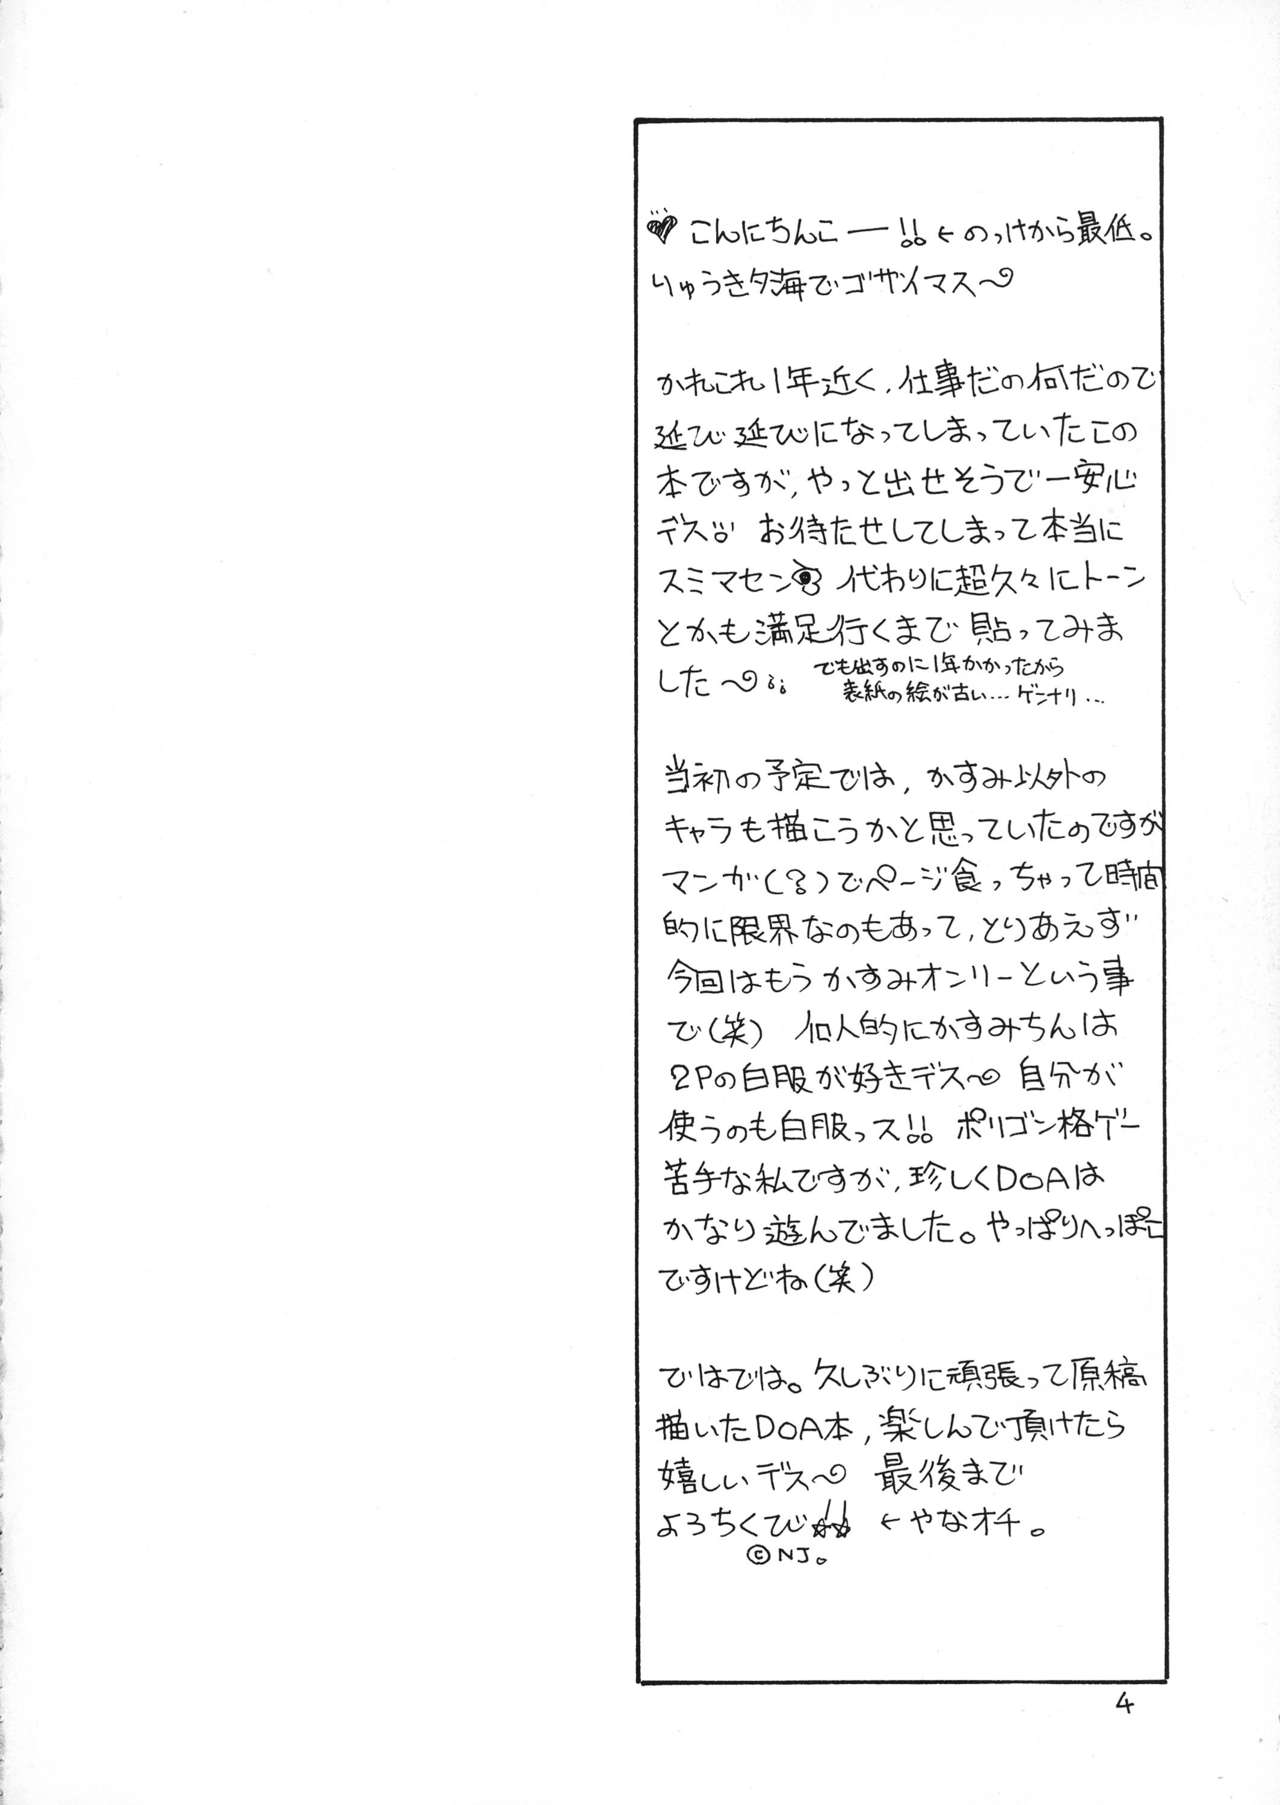 ♥こんにちんこー!!←のっけから最低。
りゅうき夕海でゴザイマス〜
かれこれ1年近く、仕事だの何だので
延び延びになってしまっていたこの
本ですが、やっと出せそうで一安心
デス。お待たせしてしまって本当に
スミマセン 代わりに超久々にトーン
とかも満足行くまで貼ってみま
した〜;;
でも出すのに1年かかったから
表紙の絵が古い…ゲンナリ…
当初の予定では、かすみ以外の
キャラも描こうかと思っていたのですが
マンガ(?)でページ食っちゃって時間
的に限界なのもあって、とりあえず
今回はもうかすみオンリーという事
で(笑) 個人的にかすみちんは
2Pの白服が好きデス〜 自分が
使うのも白服っス!! ポリゴン格ゲー
苦手な私ですが、珍しくDOAは
かなり遊んでました。やっぱりへっぽこ
ですけどね(笑)
ではでは。久しぶりに頑張って原稿
描いたDOA本、楽しんで頂けたら
嬉しいデス〜 最後まで
よろちくび!! ←やなオチ。
©NJ。
4